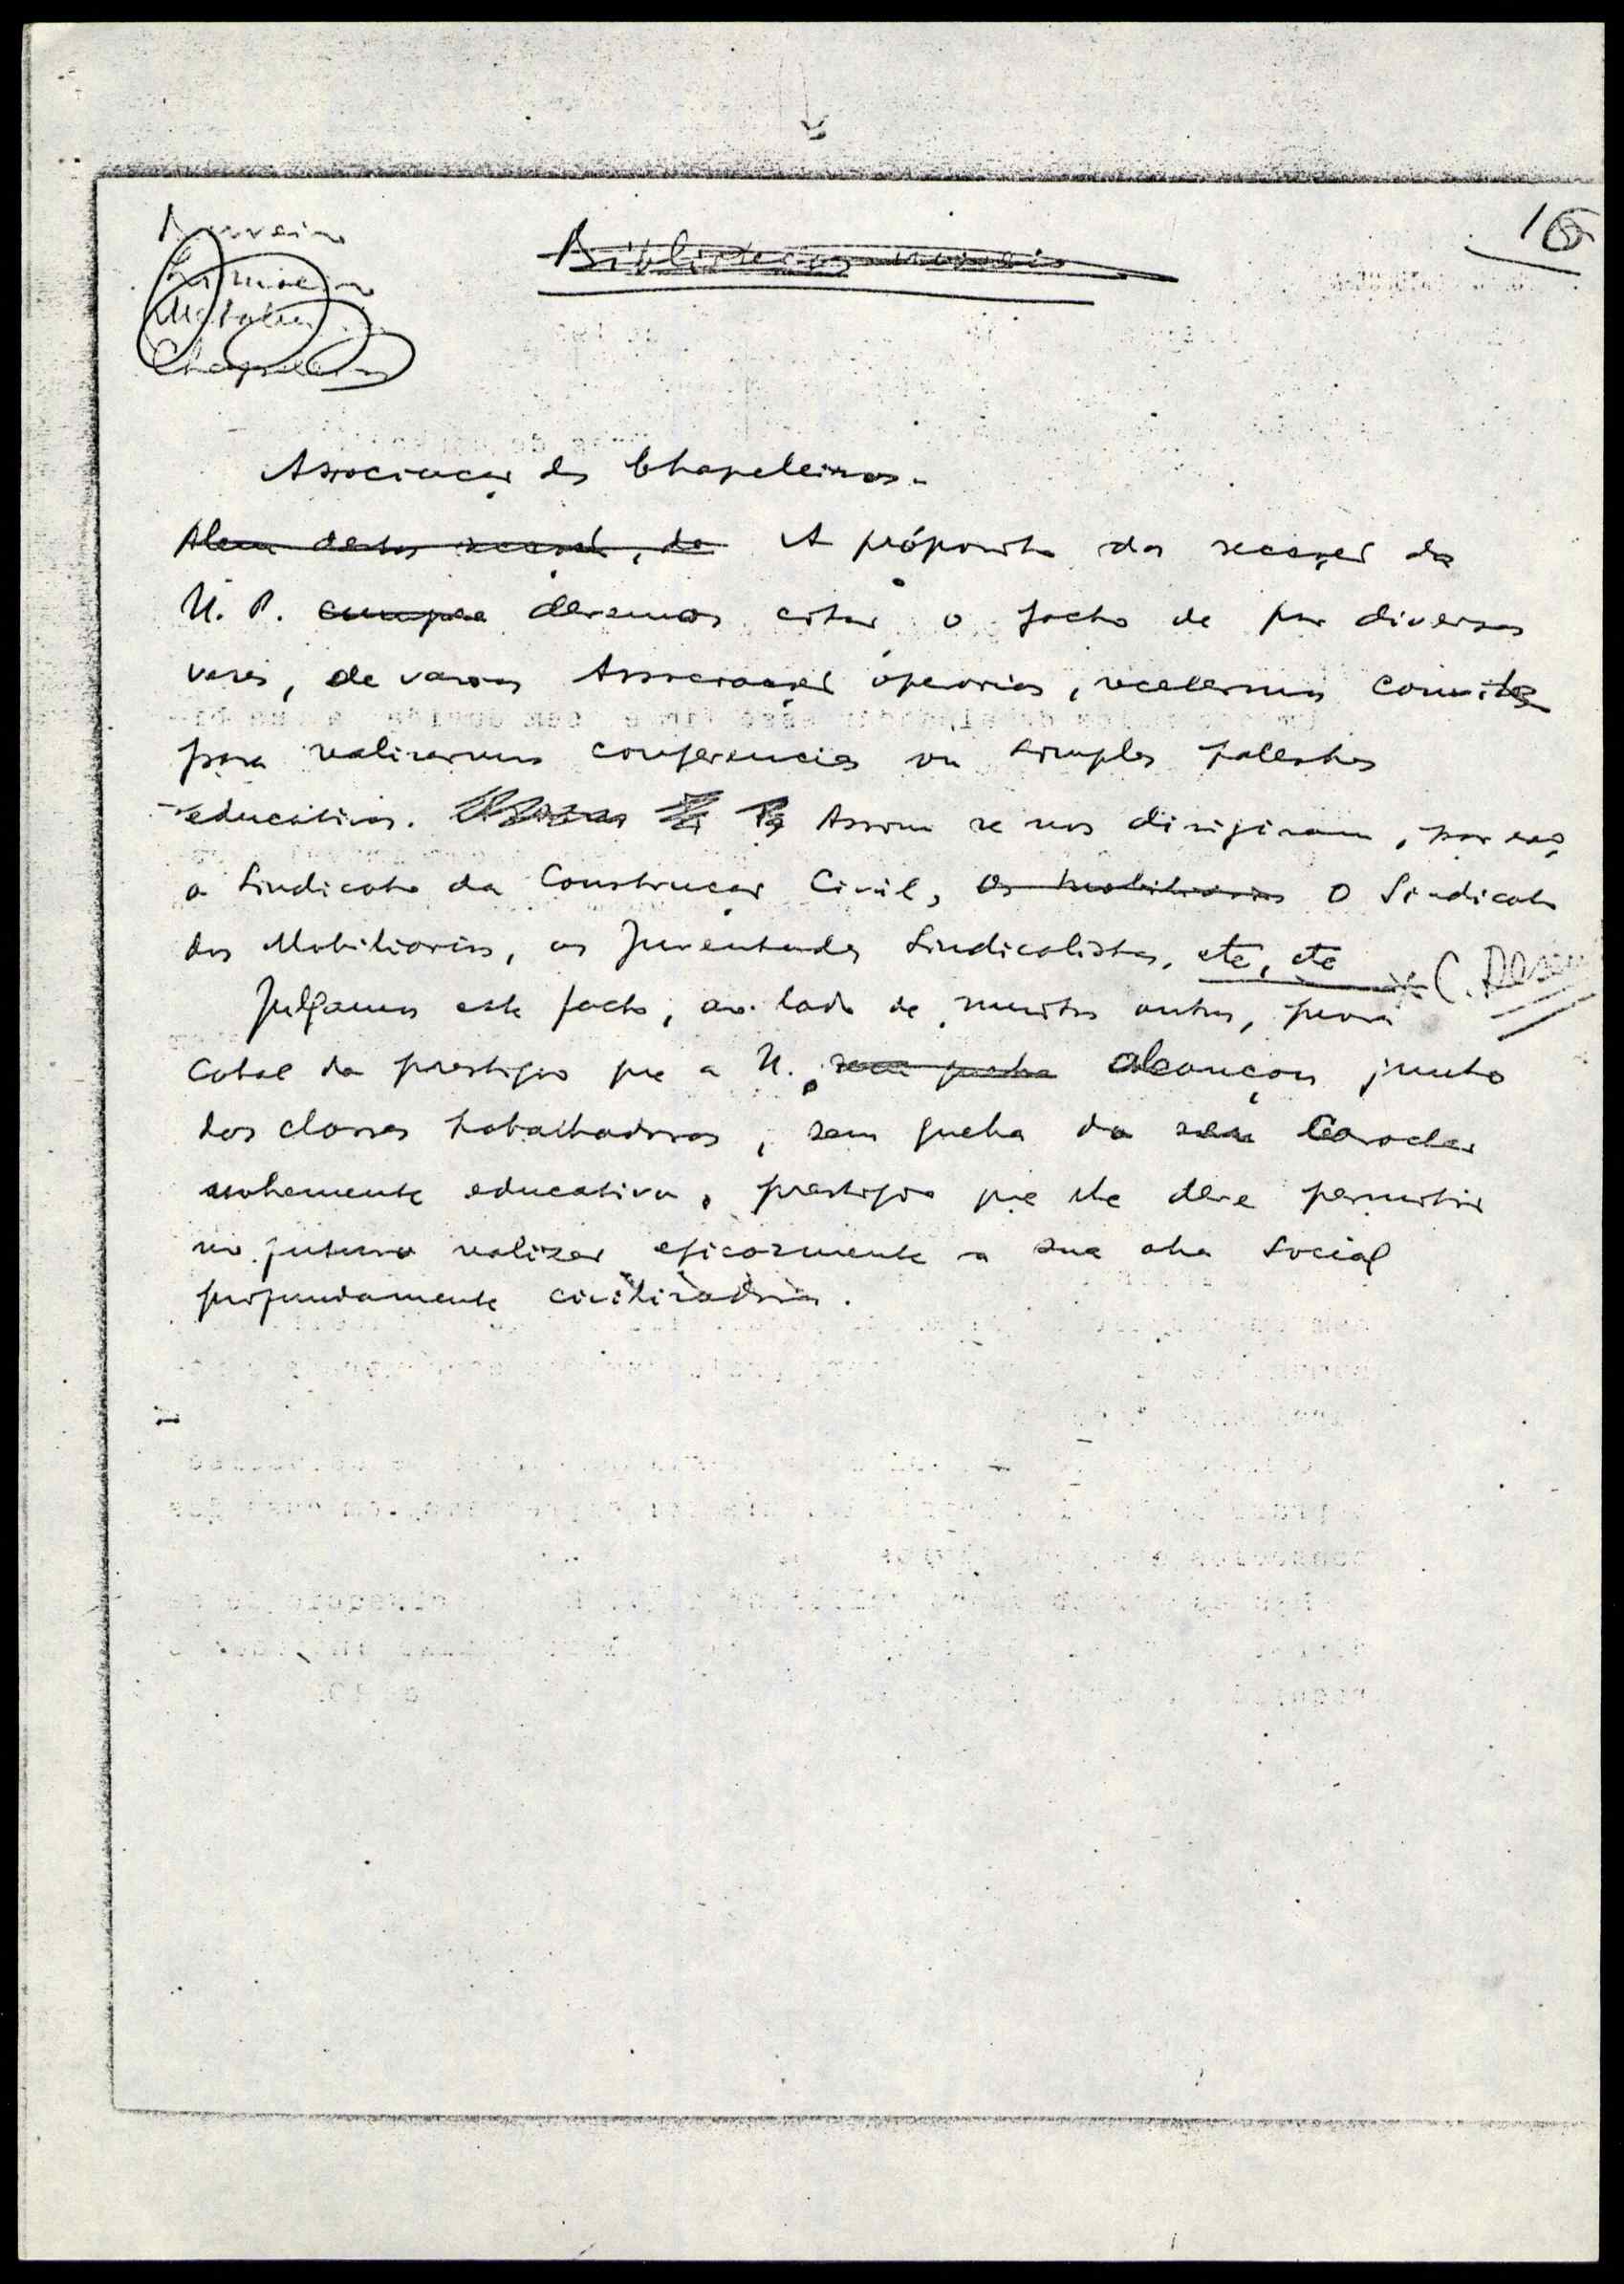 16
Chapeleiros
Associação dos Chapeleiros.
Alem destas secções, de A próposito das secções da
U. P. cumpre devemos citar o facto de por diversas
vezes, de varias Associações operarias, recebermos convites
para realizarmos conferencias ou simples palestras
educativas. Assim se nos dirigiram, por
o Sindicato da Construção Civil, os mobiliarios O Sindicato
dos Mobiliarios, as Juventudes Sindicalistas, etc, etc
Julgamos este facto, ao lado de muitos outros, prova
cabal do prestigio que a U. sem quebra alcançou junto
das classes trabalhadoras, sem quebra do seu Caracter
educativo, prestigio que lhe deve permitir
no futuro realizar eficazmente a sua obra social
profundamente civilizadora.